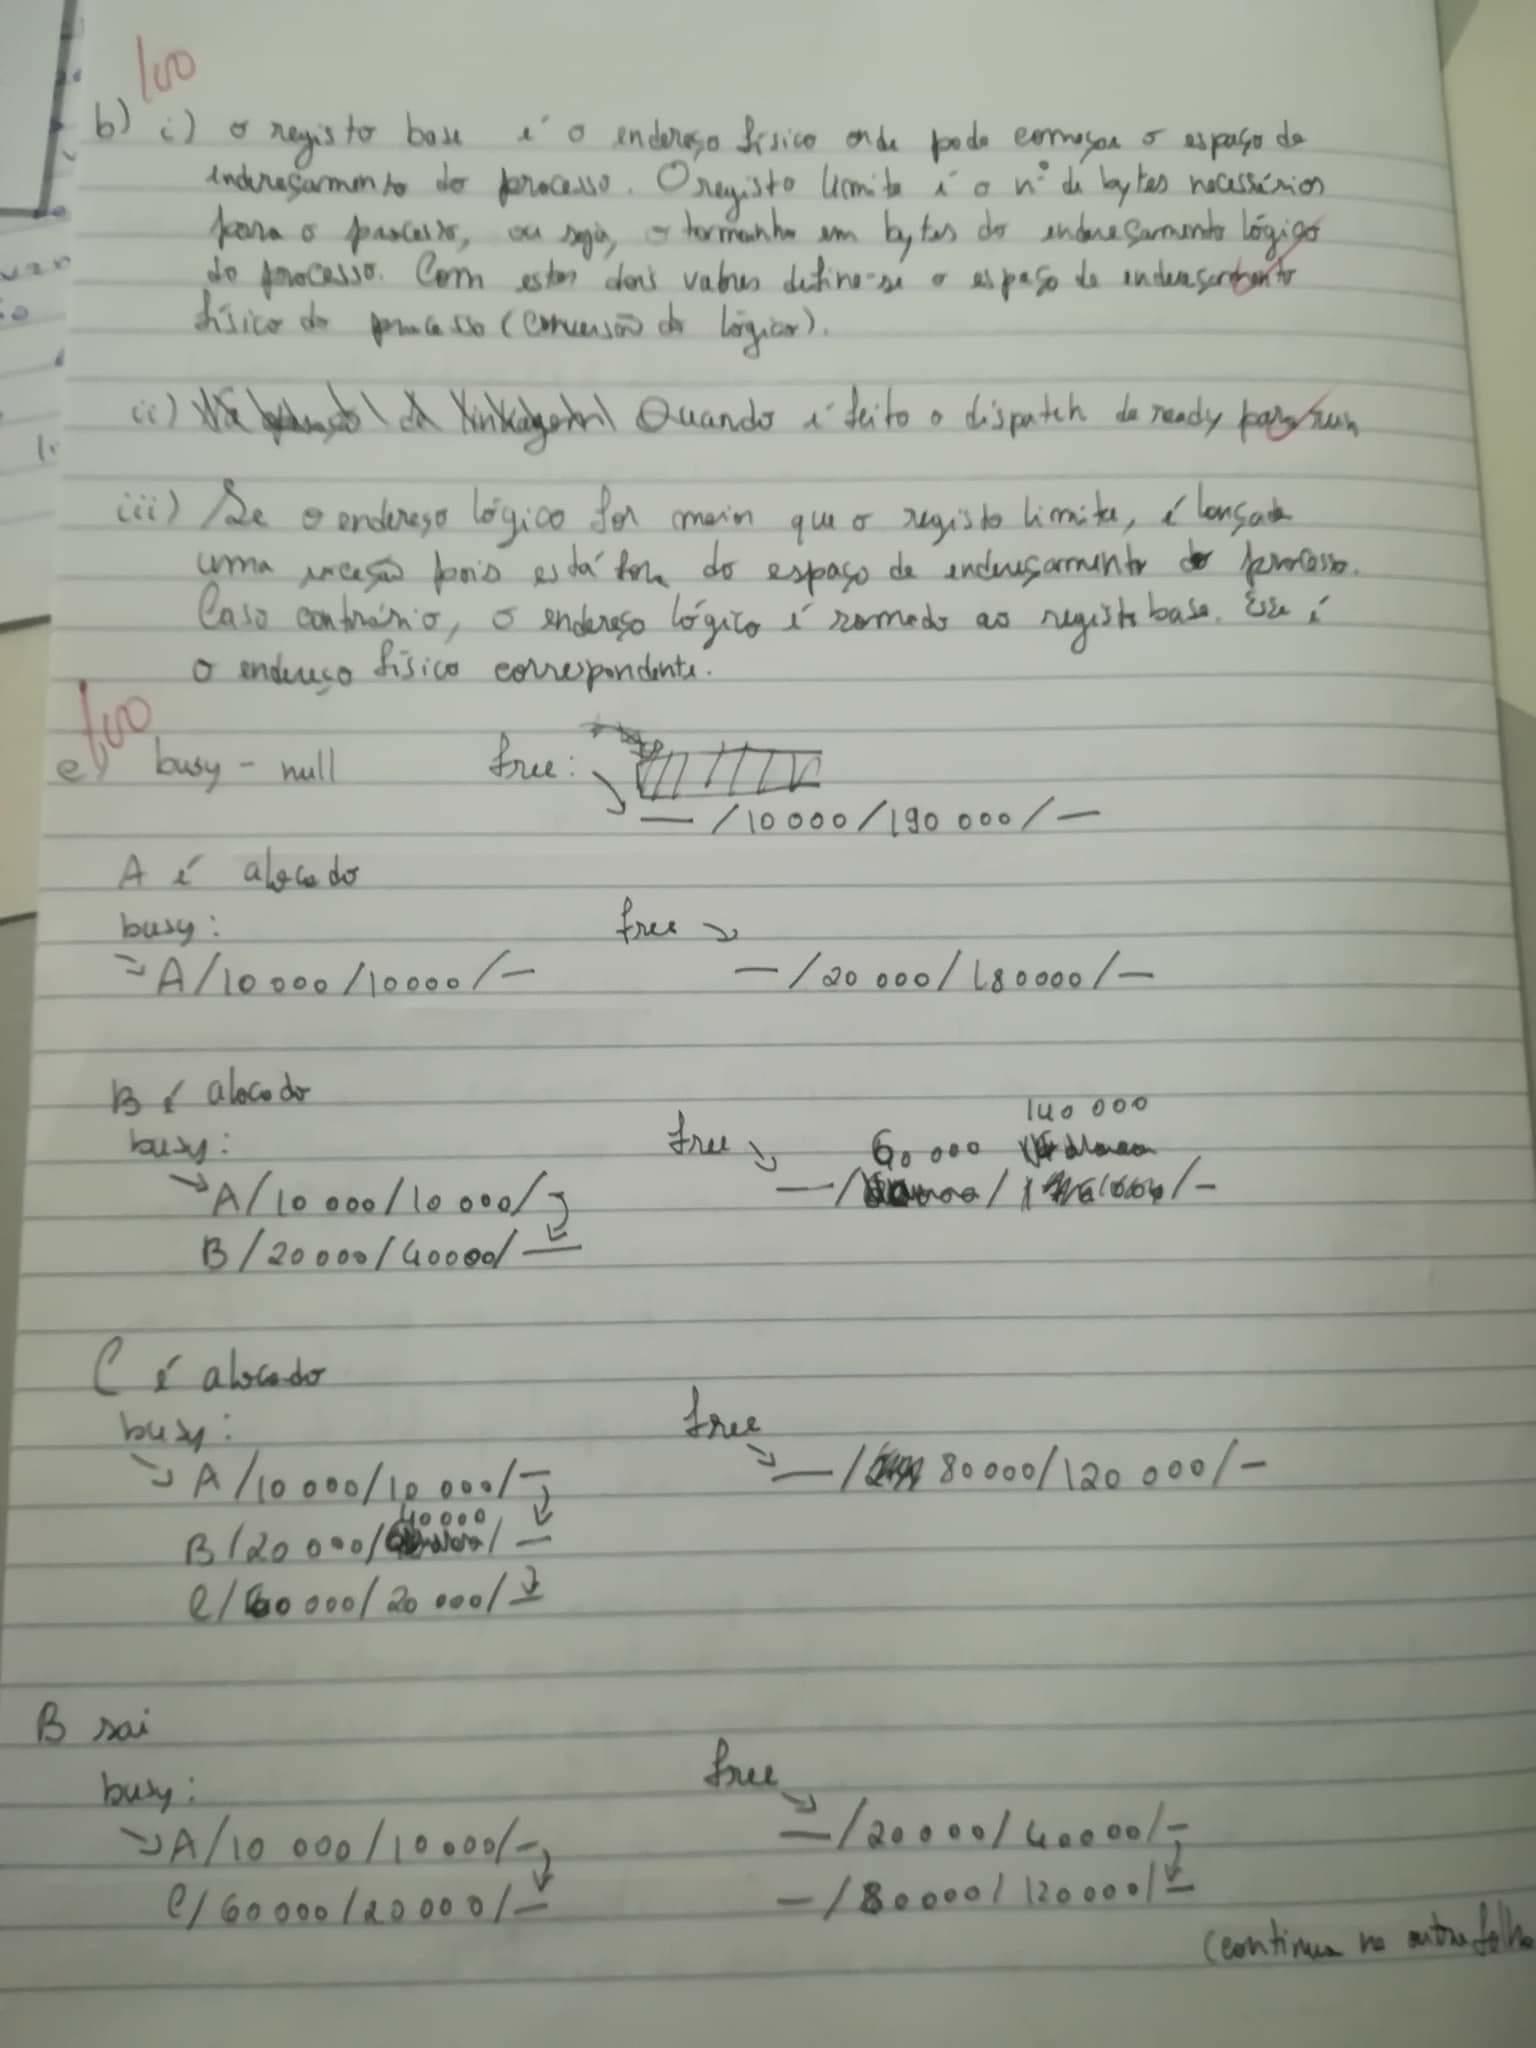 100
b) i) o registo base é o endereço físico onde pode começar o espaço de
endereçamento do processo. O registo limite é o nº de bytes necessários
para o processo, ou seja, o tamanho em bytes do endereçamento lógico
do processo. Com estes dois valores define-se o espaço de endereçamento
físico do processo (conversão do lógico).
ii) Quando é feito o dispatch de ready para run
iii) Se o endereço lógico for maior que o registo limite, é lançada
uma exceção pois está fora do espaço de endereçamento do processo.
Caso contrário, o endereço lógico é somado ao registo base. Esse é
o endereço físico correspondente.
100
c) busy - null free:
— /10 000/190 000/—
A é alocado
busy: free
A/10 000/10000/— —/20 000/180000/—
B é alocado
140 000
busy: free 60 000
A/10 000/10 000/ —/ / /—
B/20000/40000/—
C é alocado
busy: free
A/10 000/10 000/— —/ 80000/120 000/—
40000
B/20 000/ /—
C/60 000/20 000/—
B sai
busy: free
A/10 000/10000/— —/20000/40000/—
C/60000/20000/— —/80000/120000/—
(continua na outra folha